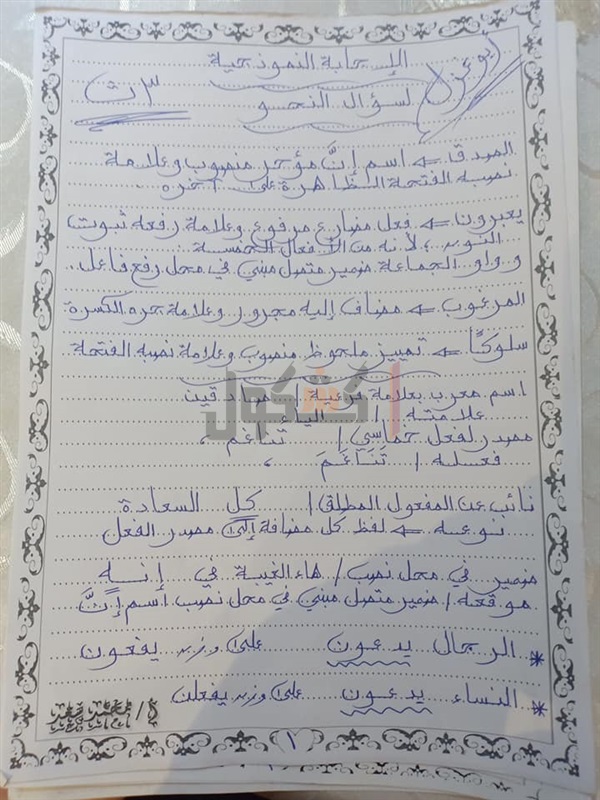 الإجابة النموذجية
لسؤال النحو
٣ ث
أبو عزوز
الصدق ← اسم إنَّ مؤخر منصوب وعلامة
نصبه الفتحة الظاهرة على آخره
يعبرون ← فعل مضارع مرفوع وعلامة رفعه ثبوت
النون؛ لأنه من الأفعال الخمسة
وواو الجماعة ضمير متصل مبني في محل رفع فاعل..
المرغوب ← مضاف إليه مجرور وعلامة جره الكسرة
سلوكًا ← تمييز ملحوظ منصوب وعلامة نصبه الفتحة
اسم معرب بعلامة فرعية / صادقين
علامته / الياء
مصدر لفعل خماسي / تناغم ،
فعله / تَنَاغَمَ ،
نائب عن المفعول المطلق / كل السعادة
نوعه ← لفظ كل مضافة إلى مصدر الفعل
ضمير في محل نصب / هاء الغيبة في إنه
موقعه / ضمير متصل مبني في محل نصب اسم إنَّ
* الرجال يدعون على وزن يفعون
* النساء يدعون على وزن يفعلن
كشكول
١